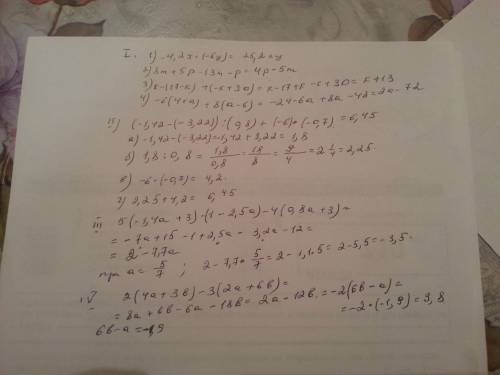 I. 1) -4,2x·(-6y) = 25,2xy
2) 8m+5p-13m-p = 4p-5m
3) k-(17-k)+(-k+30) = k-17+k-k+30 = k+13
4) -6(4+a)+8(a-6) = -24-6a+8a-42 = 2a-72
II) (-1,42-(-3,22)):(0,8)+(-6)·(-0,7) = 6,45
а) -1,42-(-3,22) = -1,42+3,22 = 1,8
б) 1,8:0,8 = 1,8/0,8 = 18/8 = 9/4 = 2 1/4 = 2,25.
в) -6·(-0,7) = 4,2.
г) 2,25+4,2 = 6,45
III 5(-1,4a+3)-(1-2,5a)-4(0,8a+3) =
= -7a+15-1+2,5a-3,2a-12 =
= 2-7,7a
при a = 5/7 ; 2-7,7·5/7 = 2-1,1·5 = 2-5,5 = -3,5.
IV 2(4a+3b)-3(2a+6b) =
= 8a+6b-6a-18b = 2a-12b = -2(6b-a) =
6b-a = -1,9 = -2·(-1,9) = 3,8